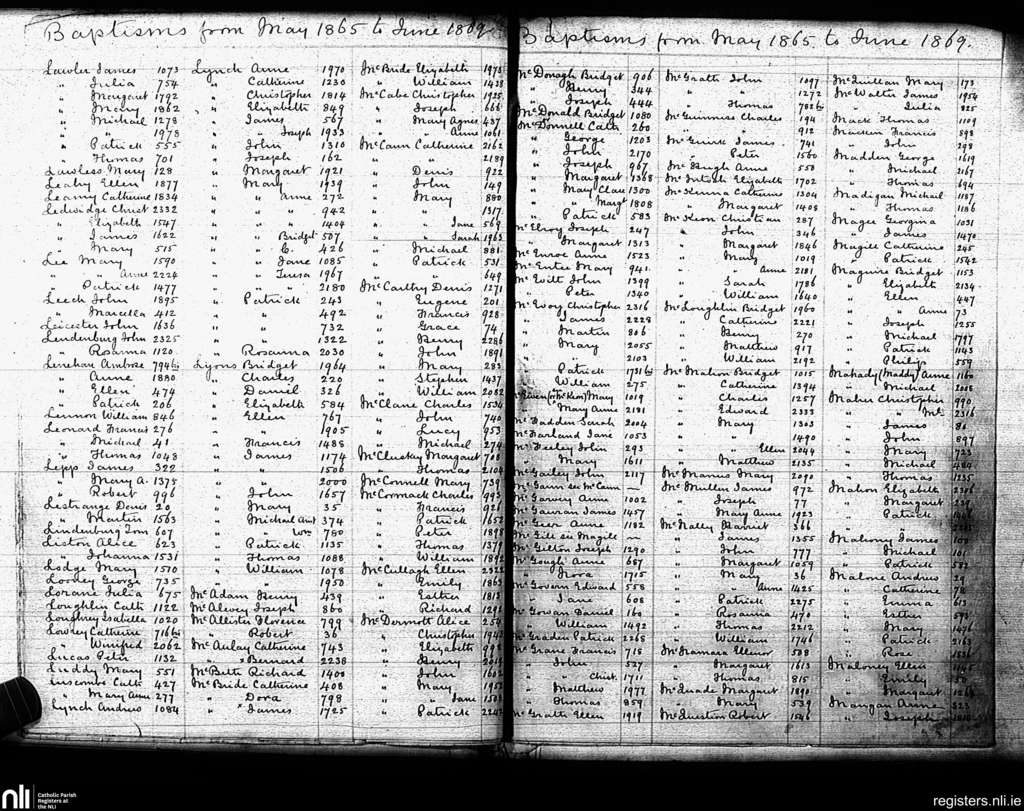 Baptisms from May 1865 to June 1869
Lawler James 1073
" Julia 754
" Margaret 1792
" Mary 1862
" Michael 1278
" " 1978
" Patrick 555
" Thomas 701
Lawless Mary 128
Leahy Ellen 1877
Leamy Catherine 1834
Ledwidge Christ 2332
" Elizabeth 1547
" James 1622
" Mary 515
Lee Mary 1590
" " Anne 2224
" Patrick 1477
Leech John 1895
" Marcella 412
Leicester John 1636
Lendenburg John 2325
" Rosanna 1120
Lenehan Ambrose 794
" Anne 1880
" Ellen 474
" Patrick 206
Lennon William 846
Leonard Francis 276
" Michael 41
" Thomas 1048
Lepp James 322
" Mary A. 1375
" Robert 996
Lestrange Denis 20
" Martin 1563
Lindenburg Tom 607
Liston Alice 623
" Johanna 1531
Lodge Mary 1570
Looney George 735
Lorane Julia 675
Loughlin Cath 1122
Loughrey Isabella 1020
Lowry Catherine 716
" Winifred 2062
Lucas Peter 1132
Luddy Mary 551
Luscombe Cath 427
" Mary Anne 277
Lynch Andrew 1084
Lynch Anne 1970
" Catherine 1230
" Christopher 1814
" Elizabeth 849
" James 567
" " Joseph 1933
" John 1310
" Joseph 162
" Margaret 1921
" Mary 1739
" " Anne 272
" " 942
" " 1404
" " Bridget 507
" " C. 426
" " Jane 1085
" " Teresa 1967
" " 2180
" Patrick 243
" " 492
" " 732
" " 1322
" Rosanna 2030
Lyons Bridget 1964
" Charles 220
" Daniel 326
" Elizabeth 584
" Ellen 767
" " 1905
" Francis 1488
" James 1174
" " 1506
" " 2000
" John 1657
" Mary 35
" Michael Ant 374
" " Wm 780
" Patrick 1135
" Thomas 1088
" William 1078
" " 1950
McAdam Henry 439
McAlevey Joseph 860
McAllister Florence 799
" Robert 36
McAulay Catherine 743
" Bernard 2238
McBeth Richard 1400
McBride Catherine 408
" Dora 798
" James 1725
McBride Elizabeth 1975
" William 1438
McCabe Christopher 1925
" Joseph 666
" Mary Agnes 437
" " Anne 1061
McCann Catherine 2162
" " 2189
" Denis 922
" John 149
" Mary 880
" " 1317
" " Jane 569
" " Sarah 1963
" Michael 881
" Patrick 531
" " 649
McCarthy Denis 1271
" Eugene 201
" Francis 928
" Grace 74
" Henry 2286
" John 1891
" Mary 283
" Stephen 1437
" William 2082
McClane Charles 1534
" John 740
" Lucy 953
" Michael 274
McClusky Margaret 708
" Thomas 2104
McConnell Mary 739
McCormack Charles 993
" Francis 921
" Patrick 1652
" Peter 1898
" Thomas 1379
" William 1892
McCullagh Ellen 2322
" Emily 1862
" Esther 1813
" Richard 1291
McDermott Alice 254
" Christopher
" Elizabeth 998
" Henry
" John
" Mary
" " Jane
" Patrick
Baptisms from May 1865 to June 1869.
McDonagh Bridget 906
" Henry 344
" Joseph 444
McDonald Bridget 1080
McDonnell Cath 260
" George 1203
" John 2170
" Joseph 967
" Margaret 1368
" Mary Clare 1300
" " Margt 1808
" Patrick 583
McElroy Joseph 247
" Margaret 1313
McEnroe Anne 1523
McEntee Mary 941
McEvitt John 1399
" Peter 1340
McEvoy Christopher 2316
" James 2228
" Martin 806
" Mary 2055
" " 2103
" Patrick 1731
" William 275
Mary 1019
" Mary Anne 2181
McFadden Sarah 2004
McFarland Jane 1053
McFeeley John 293
" Mary 1611
McGailey John 2117
McGann see McCann —
McGarvey Anne 1002
McGauran James 1457
McGeer Anne 1182
McGill see Magill —
McGilton Joseph 1290
McGough Anne 687
" Nora 1715
McGovern Edward 558
" Jane 608
McGowan Daniel 160
" William 1492
McGraden Patrick 2265
McGrane Francis 718
" John 527
" " Christ 1711
" Matthew 1977
" Thomas 859
McGrath Ellen 1919
McGrath John 1097
" " 1272
" Thomas 702
McGuinness Charles 194
" " 912
McGuirk James 741
" Peter 1560
McHugh Anne 553
McIntosh Elizabeth 1702
McKenna Catherine 1304
" Margaret 1408
McKeon Christian 287
" John 346
" Margaret 1846
" Mary 1019
" " Anne 2181
" Sarah 1786
" William 1640
McLoughlin Bridget 1960
" Catherine 2221
" Henry 270
" Matthew 917
" William 2192
McMahon Bridget 1015
" Catherine 1394
" Charles 1257
" Edward 2333
" Mary 1303
" " 1490
" " Ellen 2044
" Matthew 2135
McManus Mary 2090
McMullen James 972
" Joseph 77
" Mary Anne 1923
McNally Harriet 366
" James 1355
" John 777
" Margaret 1059
" Mary 36
" " Anne 1425
" Patrick 2275
" Rosanna 470
" Thomas 2212
" William 1746
McNamara Ellenor 588
" Margaret 1613
" Thomas 815
McQuade Margaret 1890
" Mary 539
McQuestion Robert 1546
McQuillan Mary 173
McWalter James 1954
" Julia 825
Mack Thomas 1109
Macken Francis 898
" John 298
Madden George 1619
" Michael 2167
" Thomas 694
Madigan Michael 1187
" Thomas 1186
Magee Georgina 1031
" James 1470
Magill Catherine 245
" Patrick 1542
Maguire Bridget 1153
" Elizabeth 2134
" Ellen 447
" " Anne 73
" Joseph 1255
" Michael 1797
" Patrick 1143
" Philip 559
Mahady (Maddy) Anne 1160
" Michael 2008
Maher Christopher 990
" " Mc 2316
" James 80
" John 897
" Mary 723
" Michael 484
" Thomas 1235
Mahon Elizabeth 2306
" Margaret
" Patrick
Mahony James
" Michael
" Patrick
Malone Andrew 29
" Catherine 78
" Emma 613
" Esther
" Mary
" Patrick 2163
" Rose
Maloney Ellen
" Emily
" Margaret
Mangan Anne 323
" Joseph
nli Catholic Parish
Registers at
the NLI
registers.nli.ie